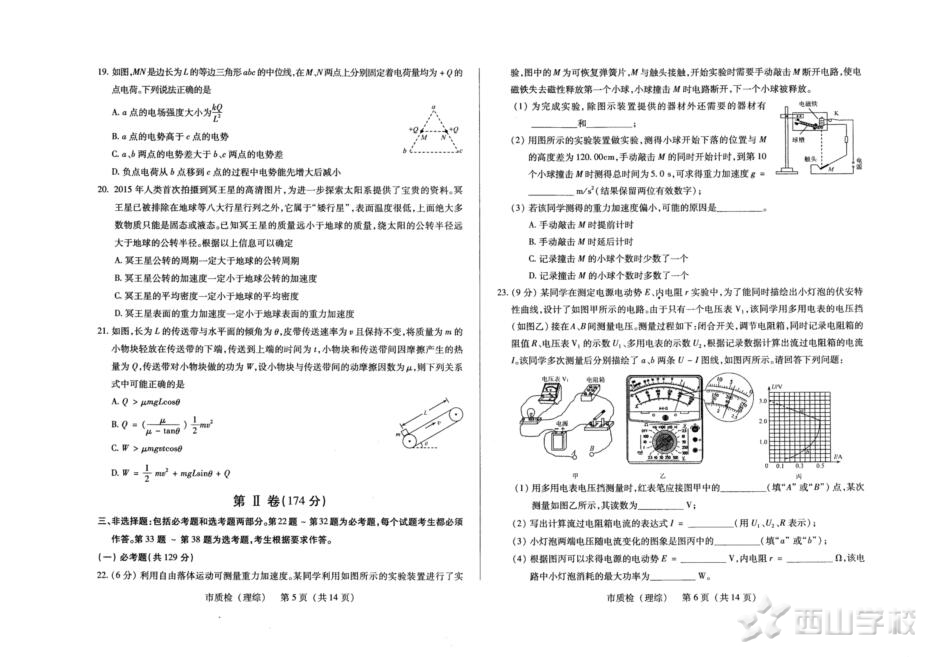 19. 如图,MN是边长为L的等边三角形abc的中位线,在M、N两点上分别固定着电荷量均为+Q的
点电荷。下列说法正确的是
A. a点的电场强度大小为kQ/L²
B. a点的电势高于c点的电势
C. a、b两点的电势差大于b、c两点的电势差
D. 负点电荷从b点移到c点的过程中电势能先增大后减小
a
+Q M N +Q
b c
20. 2015年人类首次拍摄到冥王星的高清图片,为进一步探索太阳系提供了宝贵的资料。冥
王星已被排除在地球等八大行星行列之外,它属于“矮行星”,表面温度很低,上面绝大多
数物质只能是固态或液态。已知冥王星的质量远小于地球的质量,绕太阳的公转半径远
大于地球的公转半径。根据以上信息可以确定
A. 冥王星公转的周期一定大于地球的公转周期
B. 冥王星公转的加速度一定小于地球公转的加速度
C. 冥王星的平均密度一定小于地球的平均密度
D. 冥王星表面的重力加速度一定小于地球表面的重力加速度
21. 如图,长为L的传送带与水平面的倾角为θ,皮带传送速率为v且保持不变,将质量为m的
小物块轻放在传送带的下端,传送到上端的时间为t,小物块和传送带间因摩擦产生的热
量为Q,传送带对小物块做的功为W,设小物块与传送带间的动摩擦因数为μ,则下列关系
式中可能正确的是
A. Q > μmgLcosθ
B. Q = (μ/(μ - tanθ)) 1/2 mv²
C. W > μmgvtcosθ
D. W = 1/2 mv² + mgLsinθ + Q
L
v
m
θ
第 Ⅱ 卷(174分)
三、非选择题:包括必考题和选考题两部分。第22题 ~ 第32题为必考题,每个试题考生都必须
作答。第33题 ~ 第38题为选考题,考生根据要求作答。
(一) 必考题(共129分)
22. (6分) 利用自由落体运动可测量重力加速度。某同学利用如图所示的实验装置进行了实
市质检 (理综) 第5页 (共14页)
验,图中的M为可恢复弹簧片,M与触头接触,开始实验时需要手动敲击M断开电路,使电
磁铁失去磁性释放第一个小球,小球撞击M时电路断开,下一个小球被释放。
(1) 为完成实验,除图示装置提供的器材外还需要的器材有
________和________;
(2) 用图所示的实验装置做实验,测得小球开始下落的位置与M
的高度差为120.00cm,手动敲击M的同时开始计时,到第10
个小球撞击M时测得总时间为5.0 s,可求得重力加速度g =
________m/s²(结果保留两位有效数字);
电磁铁
K
球槽
触头
M
电源
(3) 若该同学测得的重力加速度偏小,可能的原因是________。
A. 手动敲击M时提前计时
B. 手动敲击M时延后计时
C. 记录撞击M的小球个数时少数了一个
D. 记录撞击M的小球个数时多数了一个
23. (9分) 某同学在测定电源电动势E、内电阻r实验中,为了能同时描绘出小灯泡的伏安特
性曲线,设计了如图甲所示的电路。由于只有一个电压表V₁,该同学用多用电表的电压挡
(如图乙)接在A、B间测量电压。测量过程如下:闭合开关,调节电阻箱,同时记录电阻箱的
阻值R、电压表V₁的示数U₁、多用电表的示数U₂,根据记录数据计算出流过电阻箱的电流
I。该同学多次测量后分别描绘了a、b两条U - I图线,如图丙所示。请回答下列问题:
电压表V₁ 电阻箱
电源
A B
甲
乙
U/V
3.0
2.0
1.0
0 0.1 0.3 0.5
I/A
丙
(1) 用多用电表电压挡测量时,红表笔应接图甲中的________(填“A”或“B”)点,某次
测量如图乙所示,其读数为________V;
(2) 写出计算流过电阻箱电流的表达式I = ________(用U₁、U₂、R表示);
(3) 小灯泡两端电压随电流变化的图象是图丙中的________(填“a”或“b”);
(4) 根据图丙可以求得电源的电动势E = ________V,内电阻r = ________Ω,该电
路中小灯泡消耗的最大功率为________W。
市质检 (理综) 第6页 (共14页)
西山学校